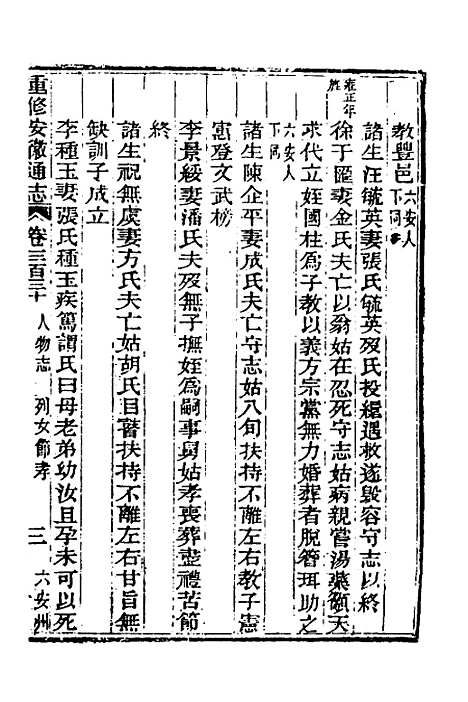 教豐邑六安人下同
諸生汪毓英妻張氏毓英歿氏投繯遇救遂毀容守志以終
徐于匯妻金氏夫亡以翁姑在忍死守志姑病親嘗湯藥籲天
雍正年旌
求代立姪國柱爲子教以義方宗黨無力婚葬者脫簪珥助之
六安人下同
諸生陳企平妻成氏夫亡守志姑八旬扶持不離左右教子憲
憲登文武榜
李景綏妻潘氏夫歿無子撫姪爲嗣事舅姑孝喪葬盡禮苦節
終
諸生祝無虞妻方氏夫亡姑胡氏目瞽扶持不離左右甘旨無
缺訓子成立
李種玉妻張氏種玉疾篤謂氏曰母老弟幼汝且孕未可以死
重修安徽通志 卷三百三十 人物志 列女節孝 三 六安州